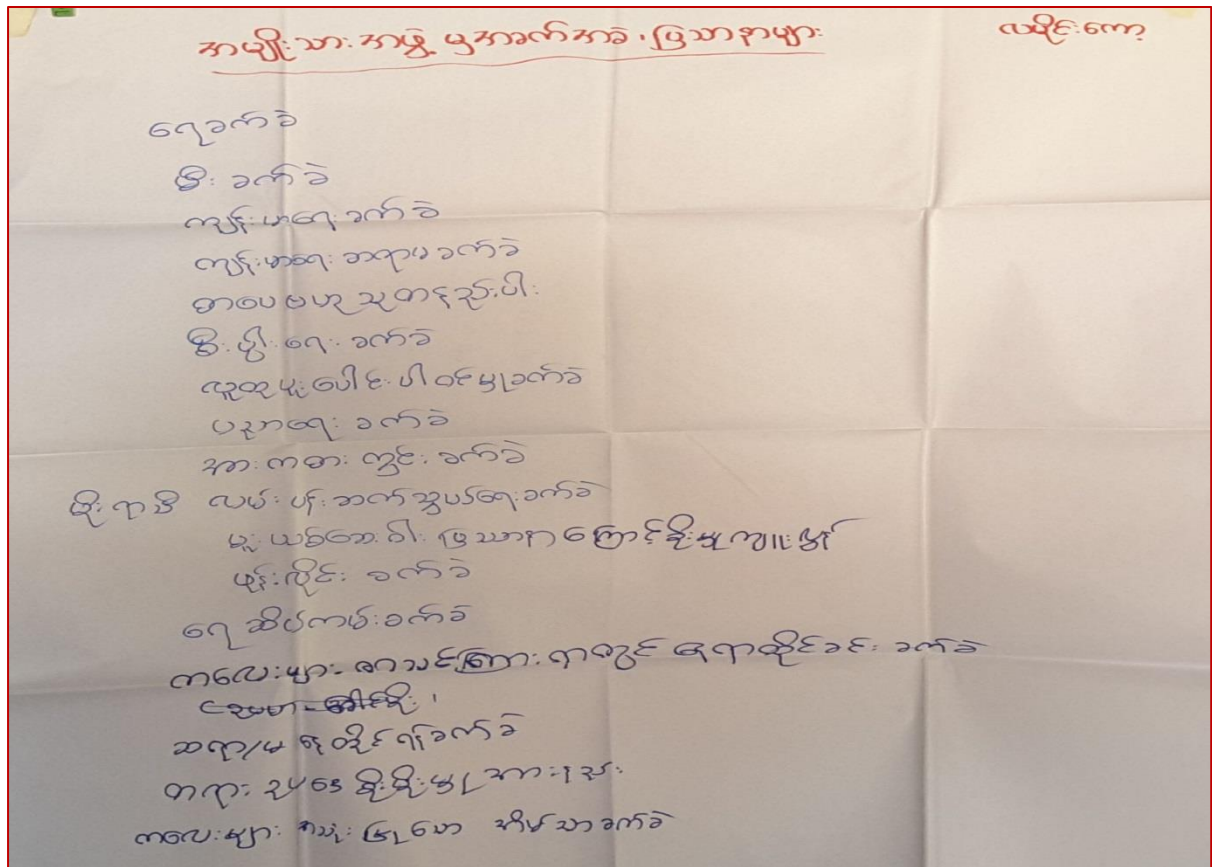 အမျိုးသားအဖွဲ့ ၏အခက်အခဲ၊ ပြသာနာများ
လမိုင်းကော့
ရေခက်ခဲ
မီး ခက်ခဲ
ကျန်းမာရေး ခက်ခဲ
ကျန်းမာရေး ဆရာမ ခက်ခဲ
စာပေ ဗဟုသုတ နည်းပါး
စီးပွါးရေး ခက်ခဲ
လူထုပူးပေါင်းပါဝင်မှုခက်ခဲ
ပညာရေး ခက်ခဲ
အားကစား ကွင်း ခက်ခဲ
မိုးရာသီ လမ်းပန်းဆက်သွယ်ရေးခက်ခဲ
မူးယစ်ဆေးဝါး ပြသာနာကြောင့်ခိုးမှုကျူးလွန်
ဖုန်းလိုင်း ခက်ခဲ
ရေ ဆိပ်ကမ်းခက်ခဲ
ကလေးများ စာသင်ကြားရာတွင် နေရာထိုင်ခင်း ခက်ခဲ
ဆရာ/မ နေထိုင်ရန်ခက်ခဲ
တရား ဥပဒေ စိုးမိုးမှု အားနည်း
ကလေးများ အသုံးပြုသော အိမ်သာခက်ခဲ